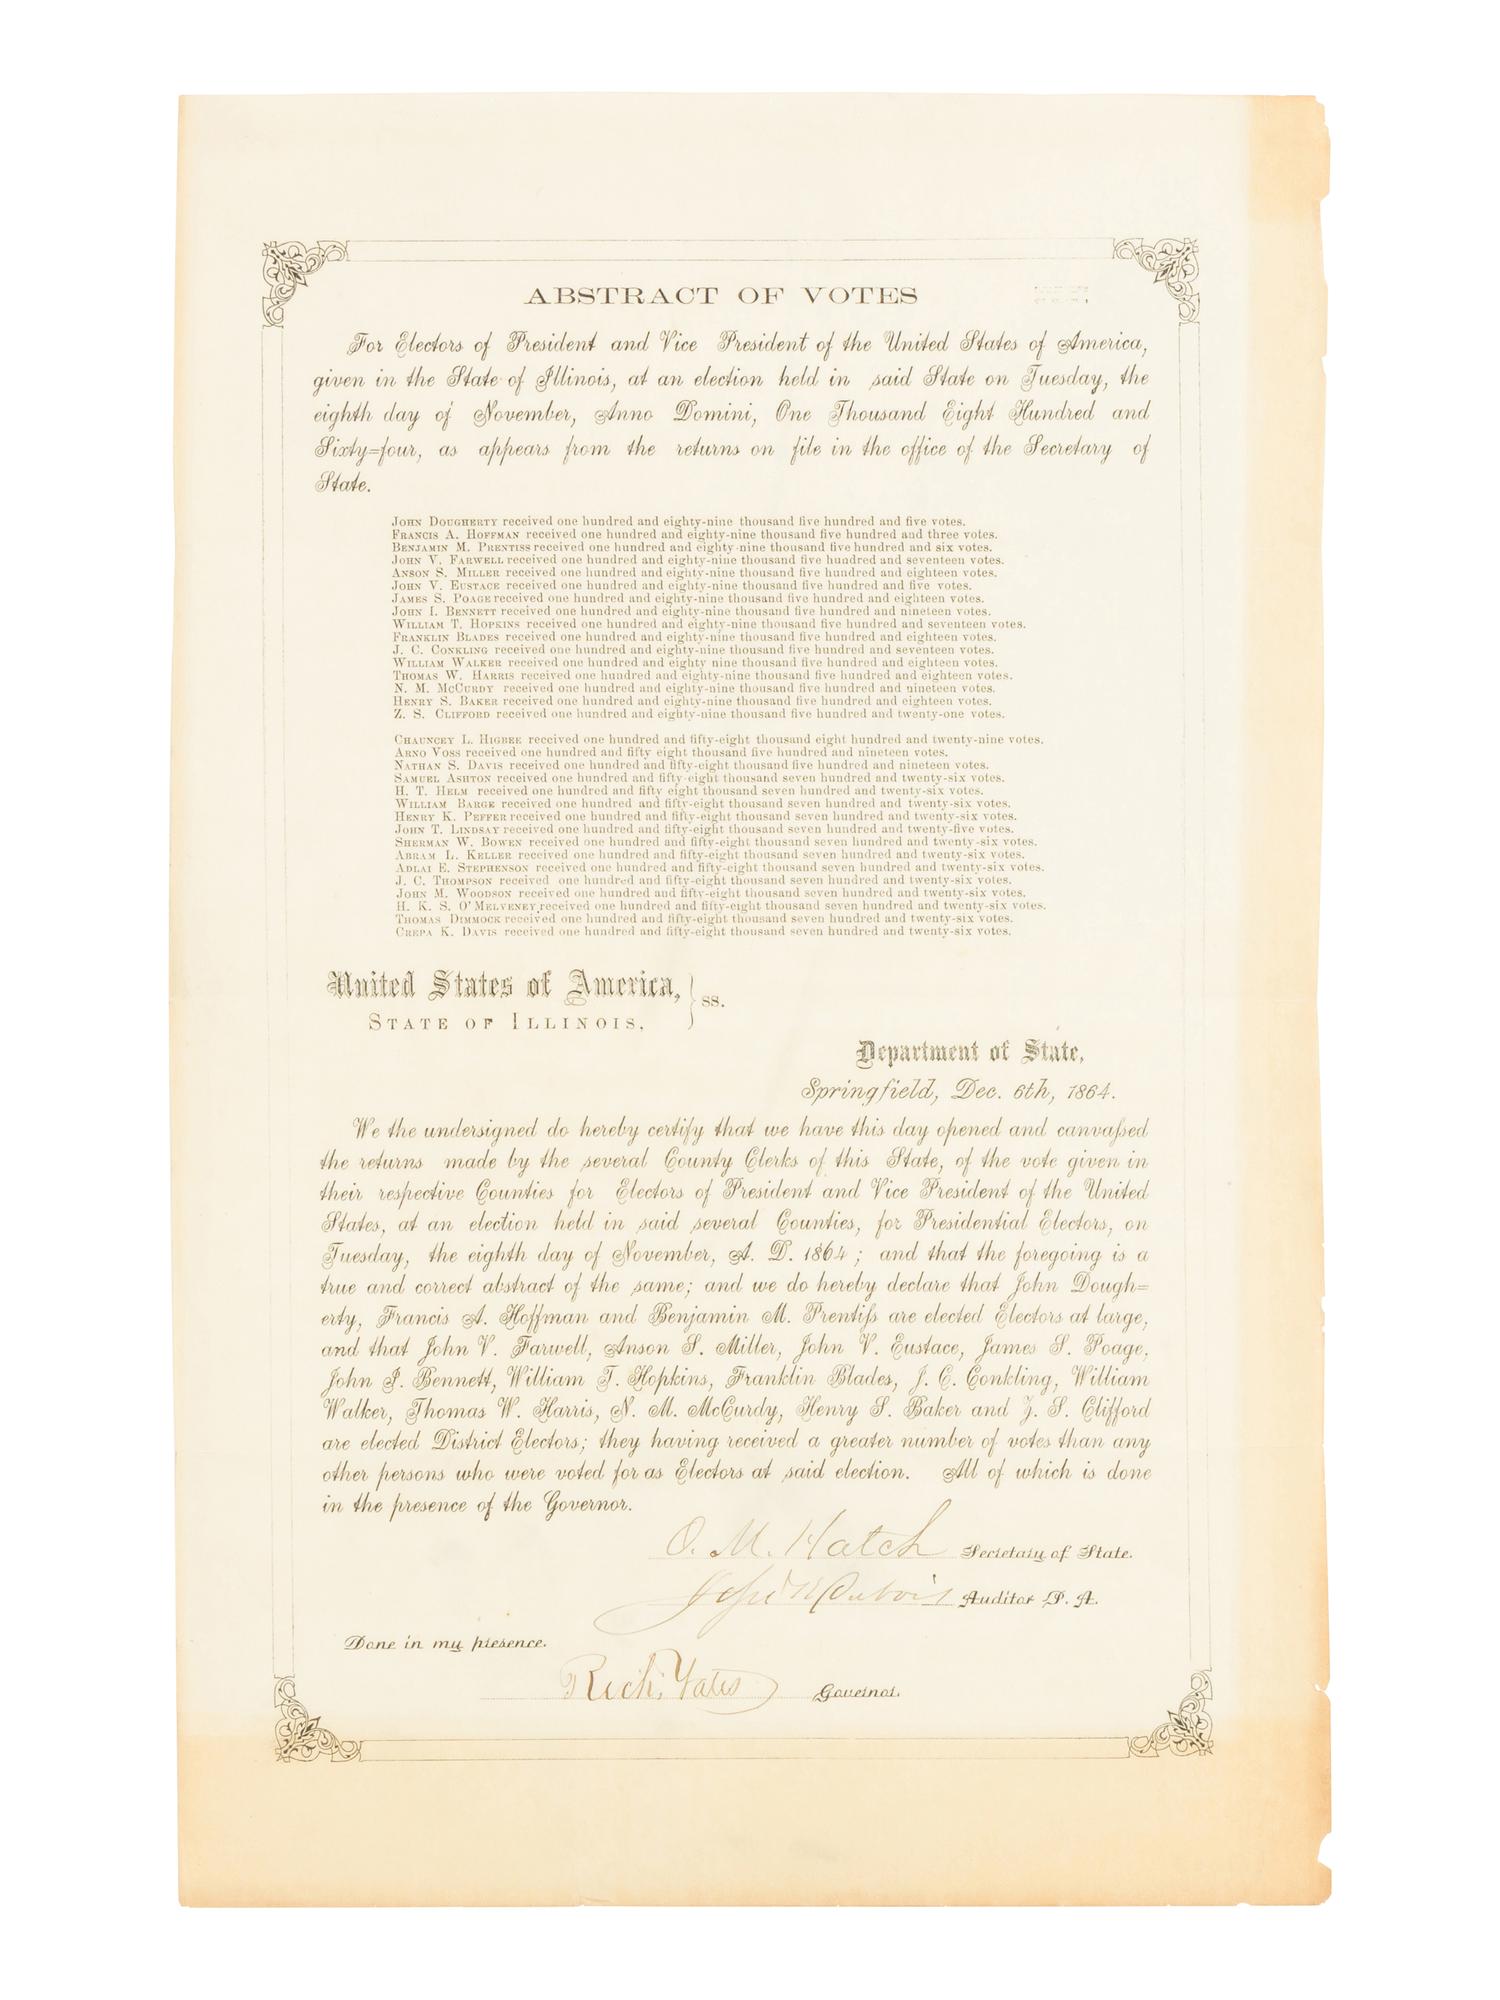 ABSTRACT OF VOTES
For Electors of President and Vice President of the United States of America,
given in the State of Illinois, at an election held in said State on Tuesday, the
eighth day of November, Anno Domini, One Thousand Eight Hundred and
Sixty=four, as appears from the returns on file in the office of the Secretary of
State.
JOHN DOUGHERTY received one hundred and eighty-nine thousand five hundred and five votes.
FRANCIS A. HOFFMAN received one hundred and eighty-nine thousand five hundred and three votes.
BENJAMIN M. PRENTISS received one hundred and eighty-nine thousand five hundred and six votes.
JOHN V. FARWELL received one hundred and eighty-nine thousand five hundred and seventeen votes.
ANSON S. MILLER received one hundred and eighty-nine thousand five hundred and eighteen votes.
JOHN V. EUSTACE received one hundred and eighty-nine thousand five hundred and five votes.
JAMES S. POAGE received one hundred and eighty-nine thousand five hundred and eighteen votes.
JOHN I. BENNETT received one hundred and eighty-nine thousand five hundred and nineteen votes.
WILLIAM T. HOPKINS received one hundred and eighty-nine thousand five hundred and seventeen votes.
FRANKLIN BLADES received one hundred and eighty-nine thousand five hundred and eighteen votes.
J. C. CONKLING received one hundred and eighty-nine thousand five hundred and seventeen votes.
WILLIAM WALKER received one hundred and eighty nine thousand five hundred and eighteen votes.
THOMAS W. HARRIS received one hundred and eighty-nine thousand five hundred and eighteen votes.
N. M. MCCURDY received one hundred and eighty-nine thousand five hundred and nineteen votes.
HENRY S. BAKER received one hundred and eighty-nine thousand five hundred and eighteen votes.
Z. S. CLIFFORD received one hundred and eighty-nine thousand five hundred and twenty-one votes.
CHAUNCEY L. HIGBEE received one hundred and fifty-eight thousand eight hundred and twenty-nine votes.
ARNO VOSS received one hundred and fifty eight thousand five hundred and nineteen votes.
NATHAN S. DAVIS received one hundred and fifty-eight thousand five hundred and nineteen votes.
SAMUEL ASHTON received one hundred and fifty-eight thousand seven hundred and twenty-six votes.
H. T. HELM received one hundred and fifty eight thousand seven hundred and twenty-six votes.
WILLIAM BARGE received one hundred and fifty-eight thousand seven hundred and twenty-six votes.
HENRY K. PEFFER received one hundred and fifty-eight thousand seven hundred and twenty-six votes.
JOHN T. LINDSAY received one hundred and fifty-eight thousand seven hundred and twenty-five votes.
SHERMAN W. BOWEN received one hundred and fifty-eight thousand seven hundred and twenty-six votes.
ABRAM L. KELLER received one hundred and fifty-eight thousand seven hundred and twenty-six votes.
ADLAI E. STEPHENSON received one hundred and fifty-eight thousand seven hundred and twenty-six votes.
J. C. THOMPSON received one hundred and fifty-eight thousand seven hundred and twenty-six votes.
JOHN M. WOODSON received one hundred and fifty-eight thousand seven hundred and twenty-six votes.
H. K. S. O'MELVENEY received one hundred and fifty-eight thousand seven hundred and twenty-six votes.
THOMAS DIMMOCK received one hundred and fifty-eight thousand seven hundred and twenty-six votes.
CREPA K. DAVIS received one hundred and fifty-eight thousand seven hundred and twenty-six votes.
United States of America, } ss.
STATE OF ILLINOIS.
Department of State,
Springfield, Dec. 6th, 1864.
We the undersigned do hereby certify that we have this day opened and canvaſsed
the returns made by the several County Clerks of this State, of the vote given in
their respective Counties for Electors of President and Vice President of the United
States, at an election held in said several Counties, for Presidential Electors, on
Tuesday, the eighth day of November, A. D. 1864; and that the foregoing is a
true and correct abstract of the same; and we do hereby declare that John Dough=
erty, Francis A. Hoffman and Benjamin M. Prentiſs are elected Electors at large,
and that John V. Farwell, Anson S. Miller, John V. Eustace, James S. Poage,
John I. Bennett, William T. Hopkins, Franklin Blades, J. C. Conkling, William
Walker, Thomas W. Harris, N. M. McCurdy, Henry S. Baker and Z. S. Clifford
are elected District Electors; they having received a greater number of votes than any
other persons who were voted for as Electors at said election. All of which is done
in the presence of the Governor.
O. M. Hatch Secretary of State.
Jesse K Dubois Auditor P. A.
Done in my presence.
Rich. Yates Governor.